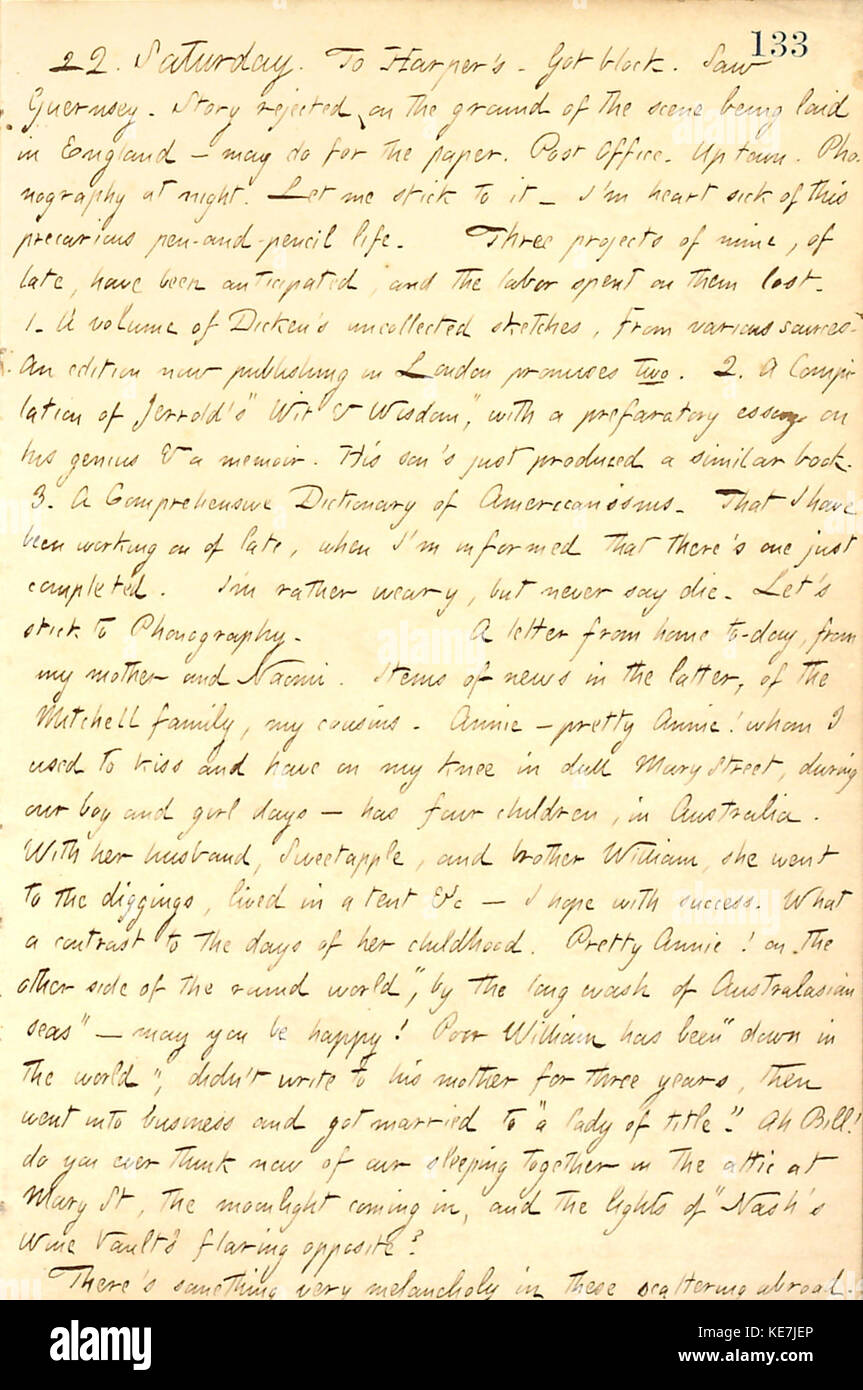 133
22. Saturday. To Harper's - Got block. Saw
Guernsey. Story rejected, on the ground of the scene being laid
in England - may do for the paper. Post Office. Up town. Pho-
nography at night. Let me stick to it - I'm heart sick of this
precarious pen-and-pencil life. Three projects of mine, of
late, have been anticipated, and the labor spent on them lost.
1. A volume of Dicken's uncollected sketches, from various sources-
An edition now publishing in London promises two. 2. A Compi-
lation of Jerrold's "Wit & Wisdom," with a prefaratory essay on
his genius & a memoir. His son's just produced a similar book.
3. A Comprehensive Dictionary of Americanisms. That I have
been working on of late, when I'm informed that there's one just
completed. I'm rather weary, but never say die. Let's
stick to Phonography.
A letter from home to-day, from
my mother and Naomi. Items of news in the latter, of the
Mitchell family, my cousins. Annie - pretty Annie! whom I
used to kiss and have on my knee in dull Mary Street, during
our boy and girl days - has four children, in Australia.
With her husband, Sweetapple, and brother William, she went
to the diggings, lived in a tent &c - I hope with success. What
a contrast to the days of her childhood. Pretty Annie! on the
other side of the round world, "by the long wash of Australasian
seas" - may you be happy! Poor William has been "down in
the world", didn't write to his mother for three years, then
went into business and got married to "a lady of title". Ah Bill!
do you ever think now of our sleeping together in the attic at
Mary St, the moonlight coming in, and the lights of "Nash's
Wine Vaults flaring opposite?
There's something very melancholy in these scattering abroad.
alamy
Image ID: KE7JEP
www.alamy.com